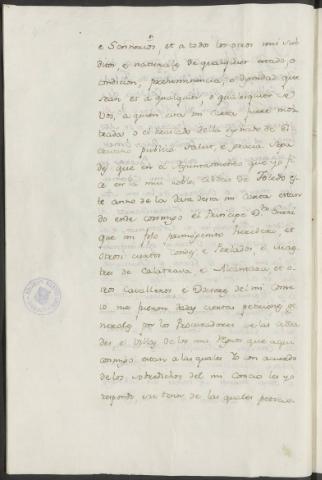 e Señorios, et a todos los otros mis sub
ditos, e naturales de qualquier estado, o
condicion, preheminencia, o dignidad que
sean et a qualquier, o qualesquier de
vos, a quien esta mi Carta fuere mos
trada, o el treslado della signado de Es
crivano publico salut, e gracia. Sepa
des que en el Ayuntamiento que yo fi
ce en la mui noble cibdad de Toledo es
te anno de la data desta mi Carta estan
do ende conmigo el Principe Dn Enrri
que mi fijo primogenito heredero, et
otrosi ciertos Condes, e Perlados, e Maes
tres de Calatrava, e Alcantara, et o
tros Cavalleros e Doctores del mi Conse
jo me fueron dadas ciertas peticiones ge
nerales por los Procuradores de las cibda
des, e Villas de los mis Regnos que aqui
conmigo estan a las quales Yo con acuerdo
de los sobredichos del mi Consejo les yo
respondi, su tenor de las quales peticio